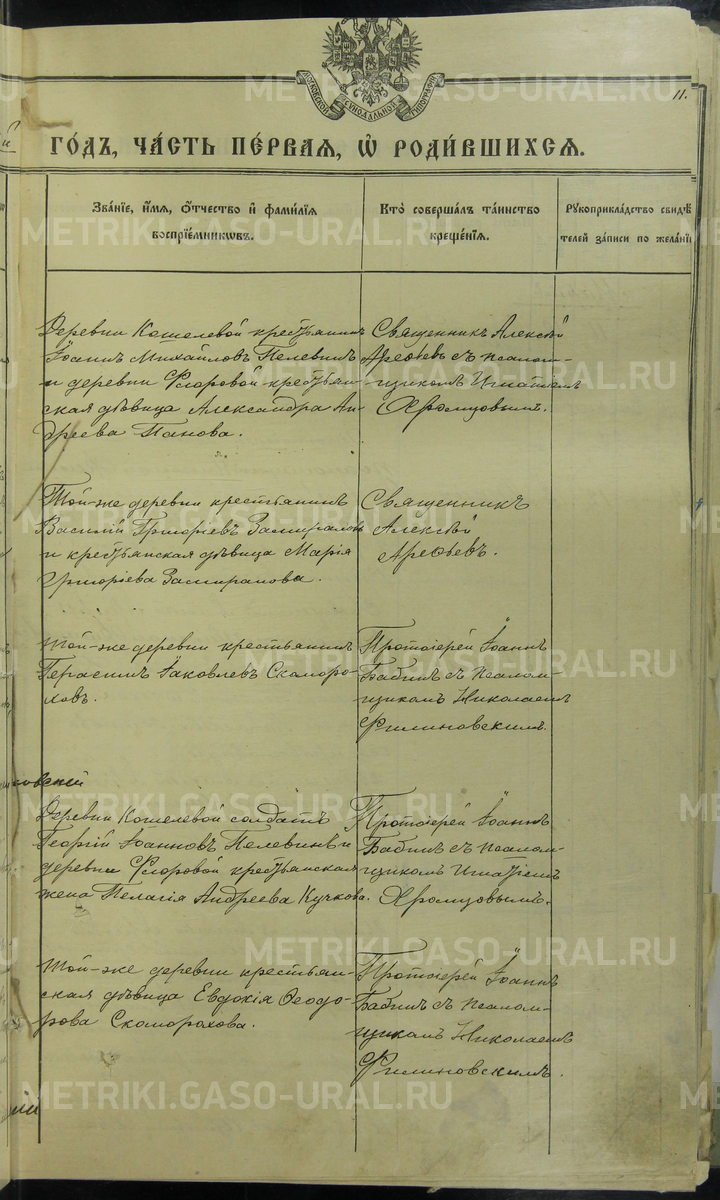 МОСКОВСКОЙ СѴНОДАЛЬНОЙ ТИПОГРАФІИ
11.
го́дъ, ча́сть пе́рвая, ѡ҆ роди́вшихсѧ.
Зва́нїе, и҆́мѧ, ѻ҆́тчество и҆ фами́лїѧ
воспрїе́мникѡвъ.
Кто̀ соверша́лъ та́инство
креще́нїѧ.
Рꙋкоприкла́дство свидѣ́
телей за́писи по жела́нїю
Деревни Кошелевой крестьянинъ
Іоаннъ Михайловъ Пелевинъ
и деревни Фроровой крестьян-
ская дѣвица Александра Ан-
дреева Панова.
Священникъ Алексѣй
Арефьевъ съ псалом-
щикомъ Игнатіемъ
Хромцовымъ.
Той-же деревни крестьянинъ
Василій Григоріевъ Замираловъ
и крестьянская дѣвица Марія
Григоріева Замиралова.
Священникъ
Алексѣй
Арефьевъ.
Той-же деревни крестьянинъ
Герасимъ Іаковлевъ Скоморо-
ховъ.
Протоіерей Іоаннъ
Бабинъ съ псалом-
щикомъ Николаемъ
Филиновскимъ.
Деревни Кошелевой солдатъ
Георгій Іоанновъ Пелевинъ и
деревни Фроровой крестьянская
жена Пелагія Андреева Кучкова.
Протоіерей Іоаннъ
Бабинъ съ псалом-
щикомъ Игнатіемъ
Хромцовымъ.
Той-же деревни крестьян-
ская дѣвица Евдокія Ѳеодо-
рова Скоморохова.
Протоіерей Іоаннъ
Бабинъ съ псалом-
щикомъ Николаемъ
Филиновскимъ.
METRIKI.GASO-URAL.RU
METRIKI.GASO-URAL.RU
METRIKI.GASO-URAL.RU
METRIKI.GASO-URAL.RU
METRIKI.GASO-URAL.RU
METRIKI.GASO-URAL.RU
METRIKI.GASO-URAL.RU
METRIKI.GASO-URAL.RU